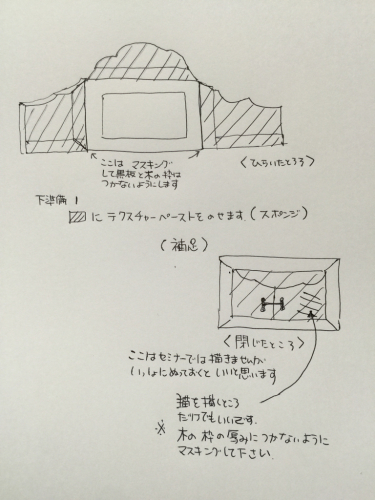 ここは マスキング
して黒板と木の枠は
つかないようにします
〈ひらいたところ〉
下準備 1
に テクスチャーペーストをのせます(スポンジ)
(補足)
〈閉じたところ〉
ここはセミナーでは描きませんが
いっしょにぬっておくと いいと思います
猫を描くところ
だけでもいいです.
※ 木の枠の厚みにつかないように
マスキングして下さい.